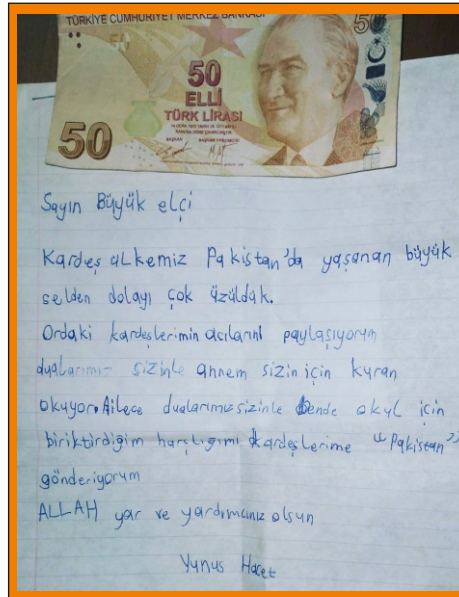 TÜRKİYE CUMHURİYET MERKEZ BANKASI
50
50
50
ELLİ
TÜRK LİRASI
50
Sayın Büyük elçi
Kardeş ülkemiz Pakistan'da yaşanan büyük
selden dolayı çok üzüldük.
Ordaki kardeşlerimin acılarını paylaşıyorum
dualarımız sizinle annem sizin için kuran
okuyor. Ailece dualarımız sizinle bende okul için
biriktirdiğim harçlığımı kardeşlerime "Pakistan"
gönderiyorum
ALLAH yar ve yardımcınız olsun
Yunus